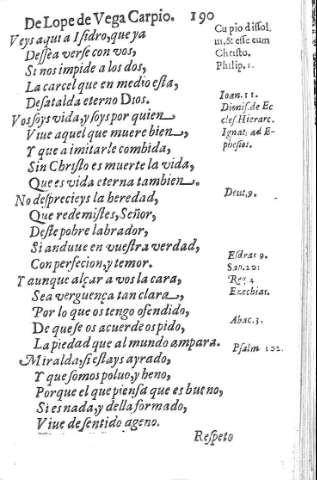 De Lope de Vega Carpio. 190
Veys aqui a Isidro, que ya
Dessea verse con vos,
Si nos impide a los dos,
La carcel que en medio esta,
Desatalda eterno Dios.
Vos soys vida, y soys por quien
Viue aquel que muere bien,
Y que a imitarle combida,
Sin Christo es muerte la vida,
Que es vida eterna tambien.
No desprecieys la heredad,
Que redemistes, Señor,
Deste pobre labrador,
Si anduue en vuestra verdad,
Con perfecion, y temor.
Y aunque alçar a vos la cara,
Sea verguença tan clara,
Por lo que os tengo ofendido,
De que se os acuerde os pido,
La piedad que al mundo ampara.
Miralda, si estays ayrado,
Y que somos poluo, y heno,
Porque el que piensa que es bueno,
Si es nada, y della formado,
Viue de sentido ageno.
Respeto
Cupio dissol.
ui, & esse cum
Christo.
Philip. 1.
Ioan. 11.
Dionis. de Ec
cles. Hierarc.
Ignat. ad E-
phesios.
Deut. 9.
Esdras 9.
San. 20:
Reg. 4
Ezechias.
Abac. 3.
Psalm 102.